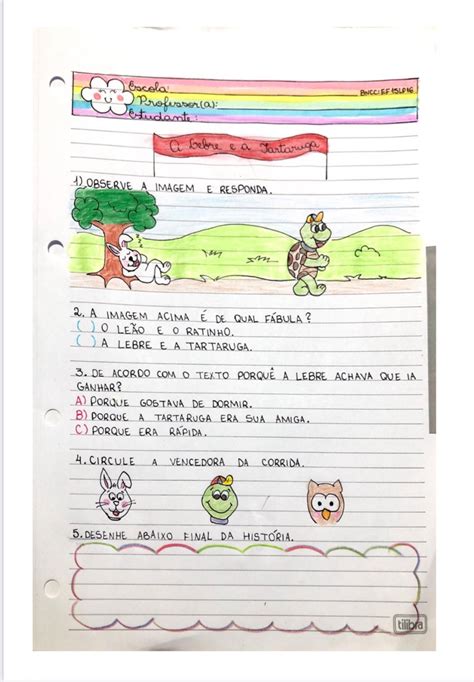 Escola:
BNCC: EF15LP16
Professor(a):
Estudante:
A Lebre e a Tartaruga
1) OBSERVE A IMAGEM E RESPONDA.
2. A IMAGEM ACIMA É DE QUAL FÁBULA?
( ) O LEÃO E O RATINHO.
( ) A LEBRE E A TARTARUGA.
3. DE ACORDO COM O TEXTO PORQUÊ A LEBRE ACHAVA QUE IA
GANHAR?
A) PORQUE GOSTAVA DE DORMIR.
B) PORQUE A TARTARUGA ERA SUA AMIGA.
C) PORQUE ERA RÁPIDA.
4. CIRCULE A VENCEDORA DA CORRIDA.
5. DESENHE ABAIXO FINAL DA HISTÓRIA.
tilibra